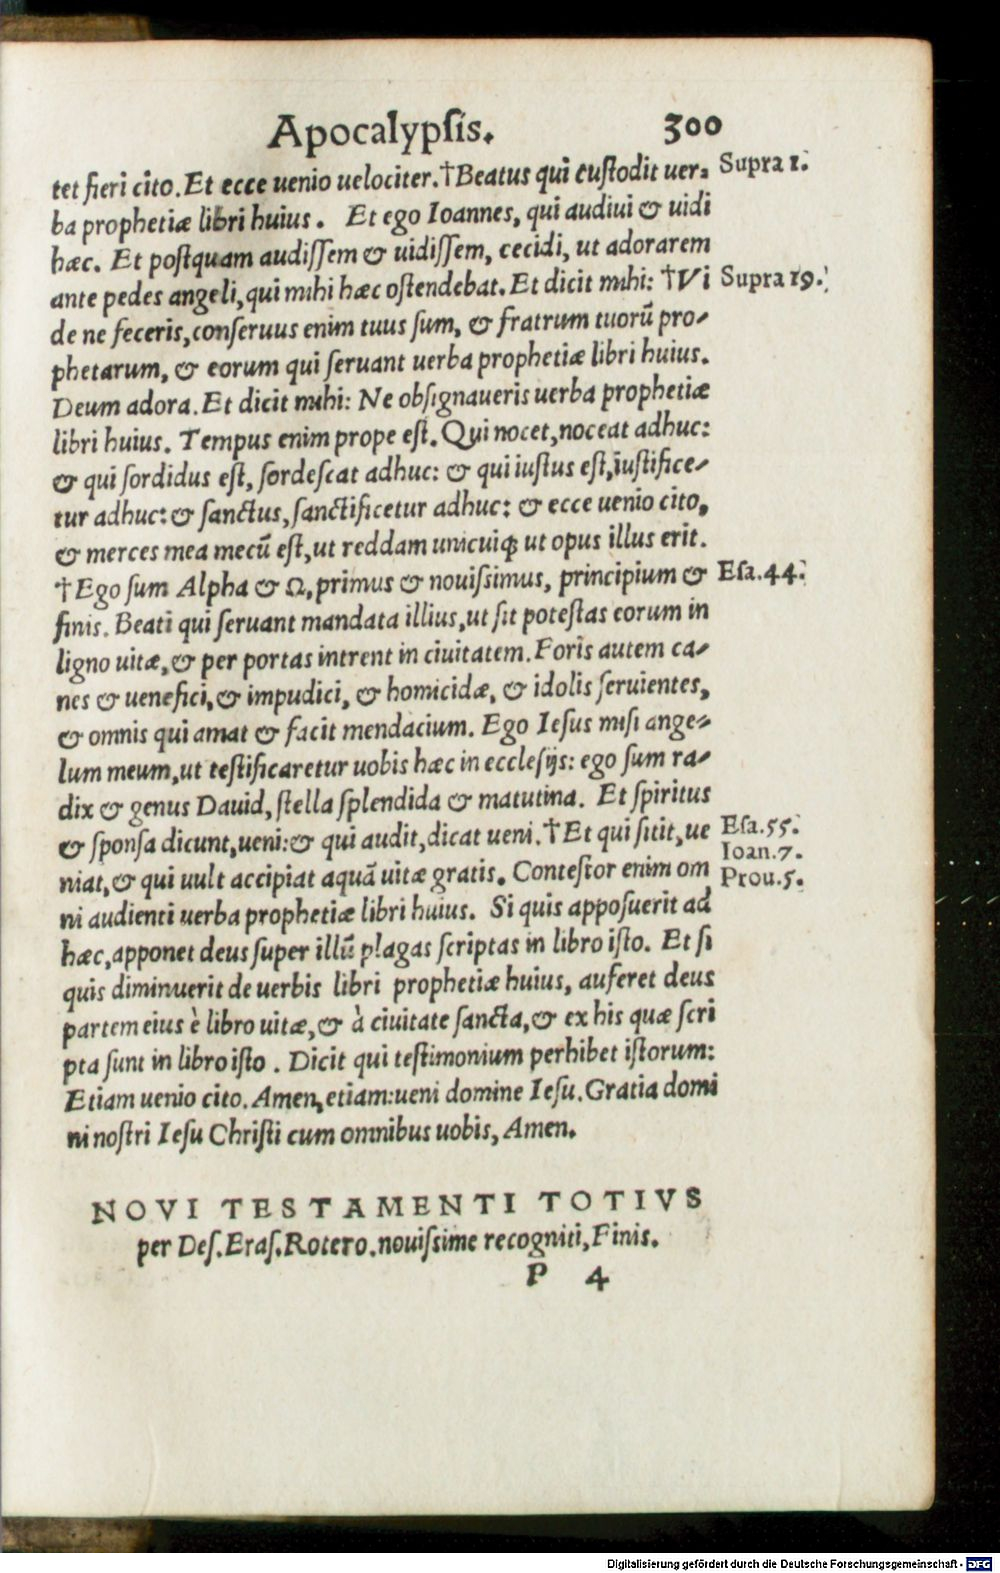 Apocalypsis. 300
tet fieri cito. Et ecce uenio uelociter. †Beatus qui custodit uer⸗ Supra 1.
ba prophetiæ libri huius. Et ego Ioannes, qui audiui & uidi
hæc. Et postquam audissem & uidissem, cecidi, ut adorarem
ante pedes angeli, qui mihi hæc ostendebat. Et dicit mihi: †Vi Supra 19.
de ne feceris, conseruus enim tuus sum, & fratrum tuorũ pro⸗
phetarum, & eorum qui seruant uerba prophetiæ libri huius.
Deum adora. Et dicit mihi: Ne obsignaueris uerba prophetiæ
libri huius. Tempus enim prope est. Qui nocet, noceat adhuc:
& qui sordidus est, sordescat adhuc: & qui iustus est, iustifice⸗
tur adhuc: & sanctus, sanctificetur adhuc: & ecce uenio cito,
& merces mea mecũ est, ut reddam unicuiq; ut opus illus erit.
†Ego sum Alpha & Ω, primus & nouissimus, principium & Esa. 44.
finis. Beati qui seruant mandata illius, ut sit potestas eorum in
ligno uitæ, & per portas intrent in ciuitatem. Foris autem ca⸗
nes & uenefici, & impudici, & homicidæ, & idolis seruientes,
& omnis qui amat & facit mendacium. Ego Iesus misi ange⸗
lum meum, ut testificaretur uobis hæc in ecclesijs: ego sum ra⸗
dix & genus Dauid, stella splendida & matutina. Et spiritus
& sponsa dicunt, ueni: & qui audit, dicat ueni. †Et qui sitit, ue Esa. 55.
Ioan. 7.
niat, & qui uult accipiat aquã uitæ gratis. Contestor enim om Prou. 5.
ni audienti uerba prophetiæ libri huius. Si quis apposuerit ad
hæc, apponet deus super illũ plagas scriptas in libro isto. Et si
quis diminuerit de uerbis libri prophetiæ huius, auferet deus
partem eius è libro uitæ, & à ciuitate sancta, & ex his quæ scri
pta sunt in libro isto. Dicit qui testimonium perhibet istorum:
Etiam uenio cito. Amen, etiam: ueni domine Iesu. Gratia domi
ni nostri Iesu Christi cum omnibus uobis, Amen.
NOVI TESTAMENTI TOTIVS
per Des. Eras. Rotero. nouissime recogniti, Finis.
P 4
Digitalisierung gefördert durch die Deutsche Forschungsgemeinschaft - DFG